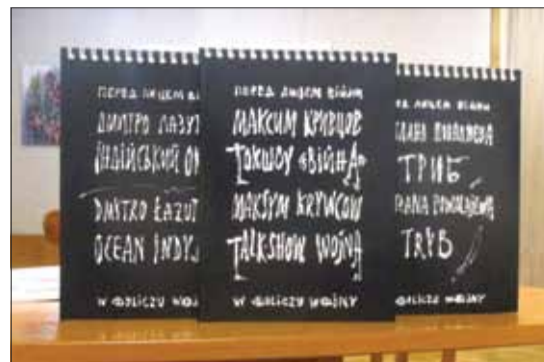 ПЕРЕД ЛИЦЕМ ВІ
ДМИТРО ЛАЗУТ
ІНДІЙСЬКИЙ О
DMYTRO ŁAZUT
OCEAN INDYJ
W OBLICZU WOJ
ПЕРЕД ЛИЦЕМ ВІЙНИ
МАКСИМ КРИВЦОВ
ТОКШОУ «ВІЙНА»
MAKSYM KRYWCOW
TALKSHOW WOJNA
W OBLICZU WOJNY
ПЕРЕД ЛИЦЕМ ВІЙНИ
ТРИБ
TRYB
W OBLICZU WOJNY